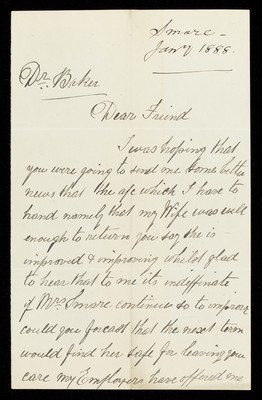 Smarc -
Jany 1888
Dr. Baker
Dear Friend
I was hoping that
you were going to send me some better
news that the afc which I have to
hand namely that my Wife was well
enough to return you say she is
improved & improving whilst glad
to hear that to me its indiffinate
if Mrs Smarc continues so to improve
could you forcast that the next term
would find her safe for leaving your
care my Employers have offered me